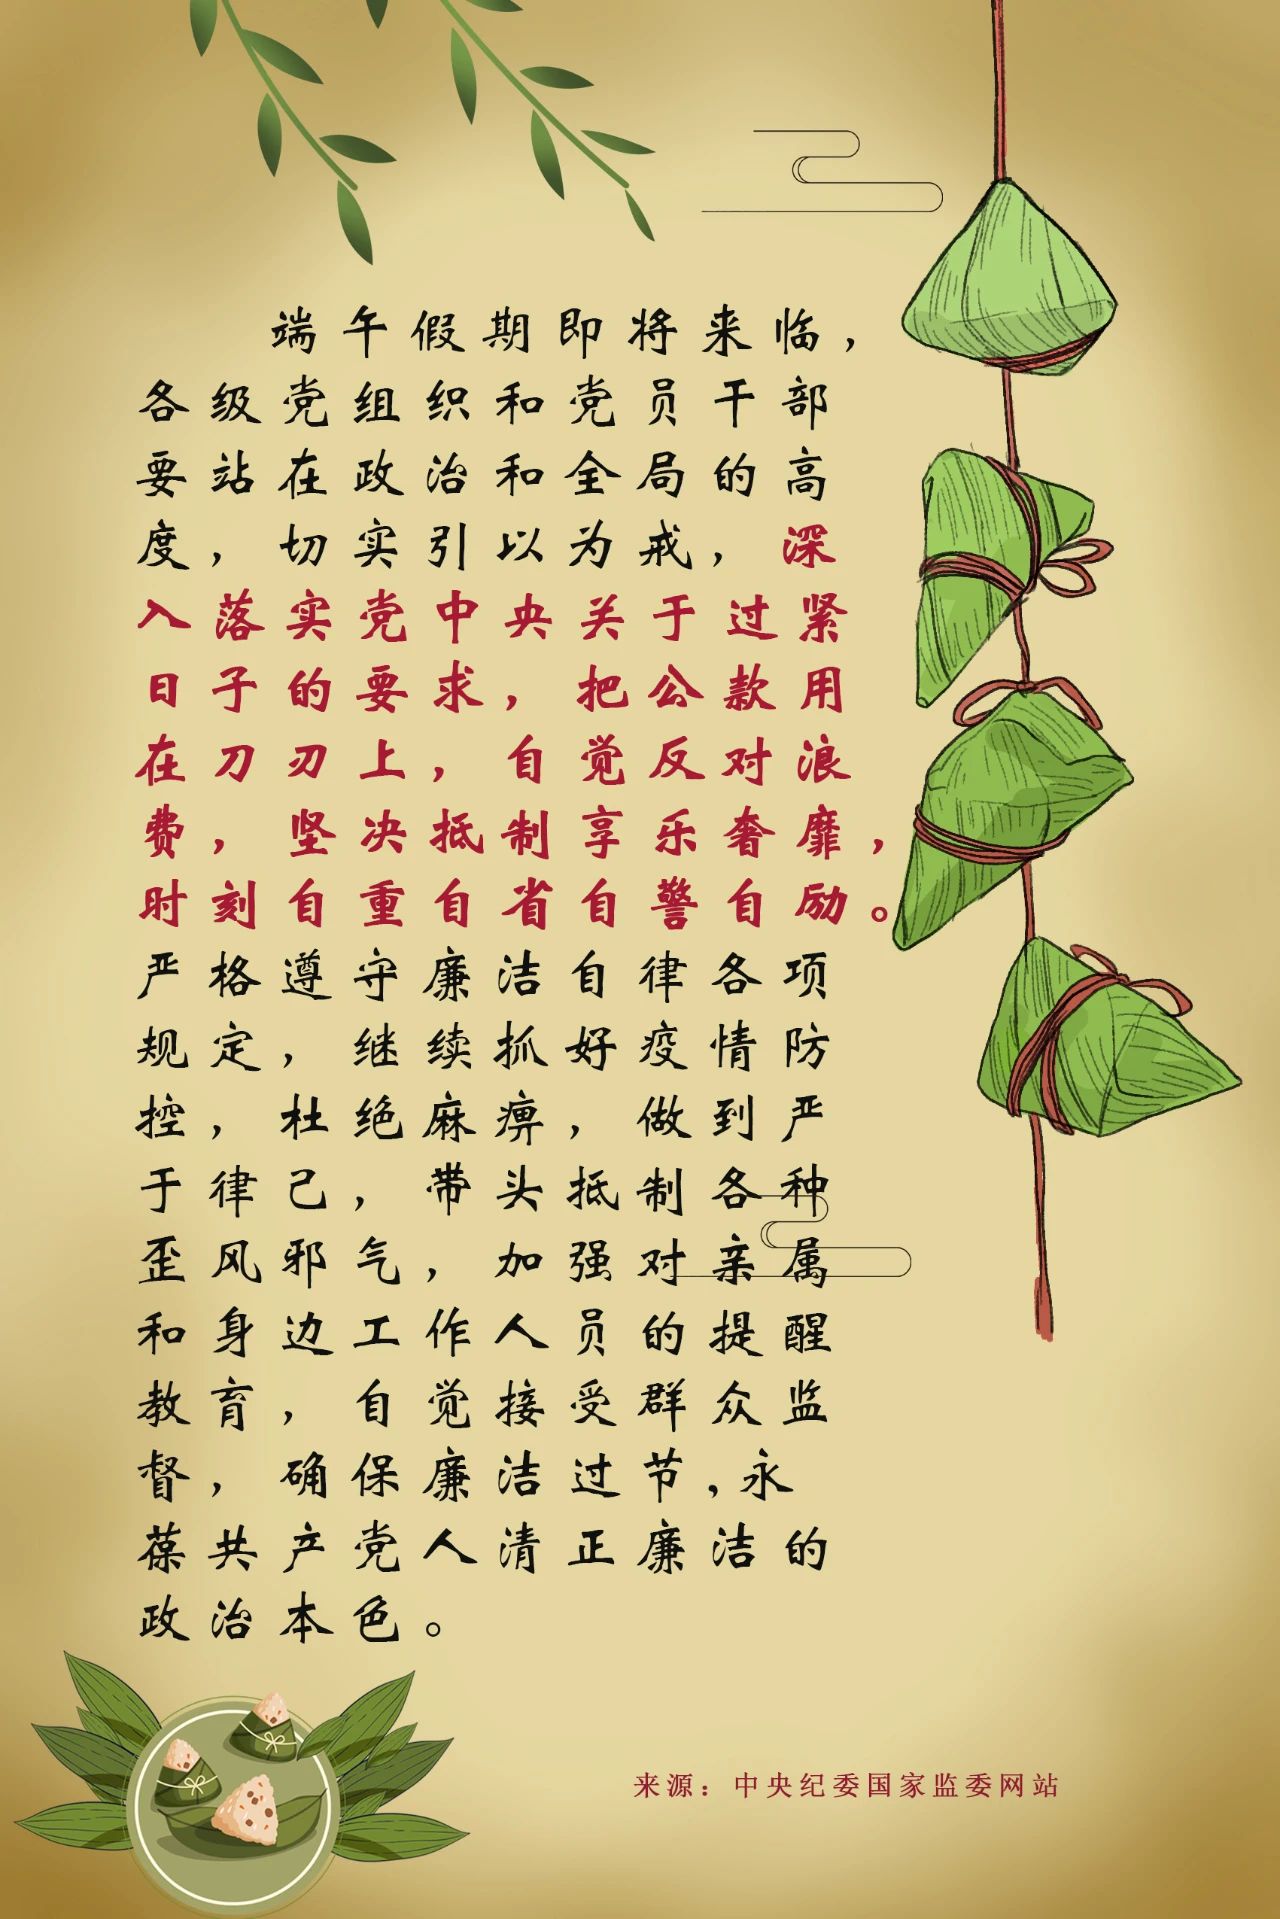 端午假期即将来临，
各级党组织和党员干部
要站在政治和全局的高
度，切实引以为戒，深
入落实党中央关于过紧
日子的要求，把公款用
在刀刃上，自觉反对浪
费，坚决抵制享乐奢靡，
时刻自重自省自警自励。
严格遵守廉洁自律各项
规定，继续抓好疫情防
控，杜绝麻痹，做到严
于律己，带头抵制各种
歪风邪气，加强对亲属
和身边工作人员的提醒
教育，自觉接受群众监
督，确保廉洁过节,永
葆共产党人清正廉洁的
政治本色。
来源：中央纪委国家监委网站